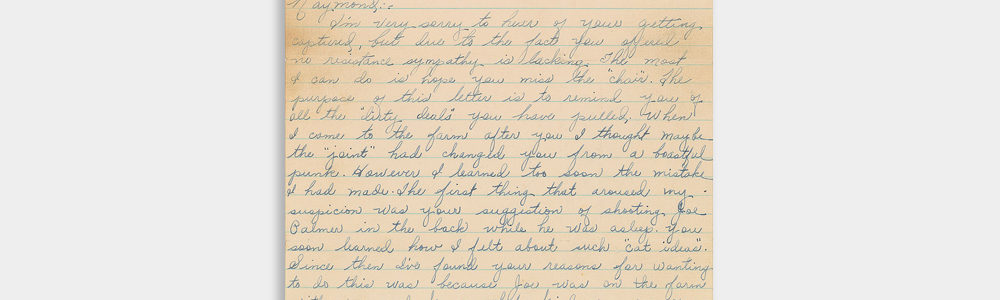 Raymond:-
I'm very sorry to hear of your getting
captured, but due to the fact you offered
no resistance sympathy is lacking. The most
I can do is hope you miss the "chair". The
purpose of this letter is to remind you of
all the "dirty deals" you have pulled, When
I come to the farm after you I thought maybe
the "joint" had changed you from a boastful
punk. However I learned too soon the mistake
I had made. The first thing that aroused my
suspicion was your suggestion of shooting Joe
Palmer in the back while he was asleep. You
soon learned how I felt about such "cat ideas".
Since then I've found your reasons for wanting
to do this was because Joe was on the farm